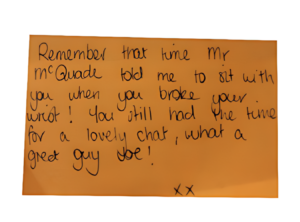 Remember that time Mr
McQuade told me to sit with
you when you broke your
wrist! You still had the time
for a lovely chat, what a
great guy Joe!
xx